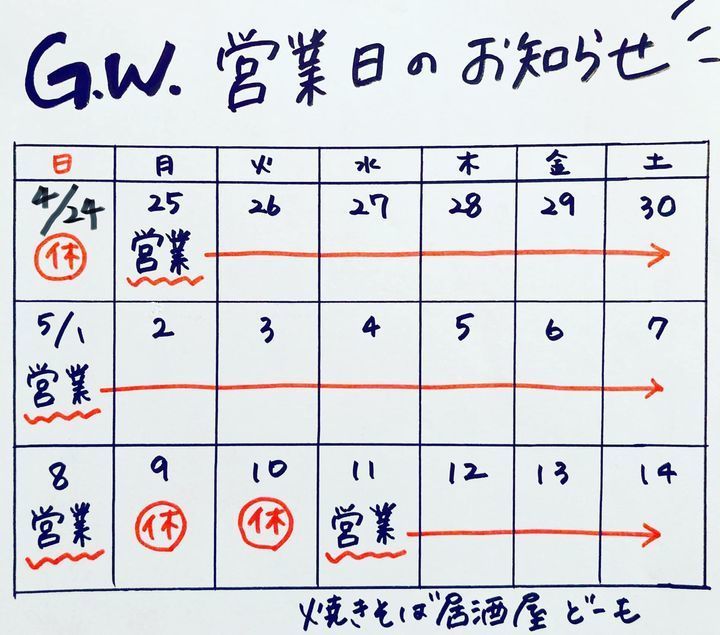 G.W. 営業日のお知らせ
日 月 火 水 木 金 土
4/24 25 26 27 28 29 30
休 営業
5/1 2 3 4 5 6 7
営業
8 9 10 11 12 13 14
営業 休 休 営業
焼きそば居酒屋 どーも